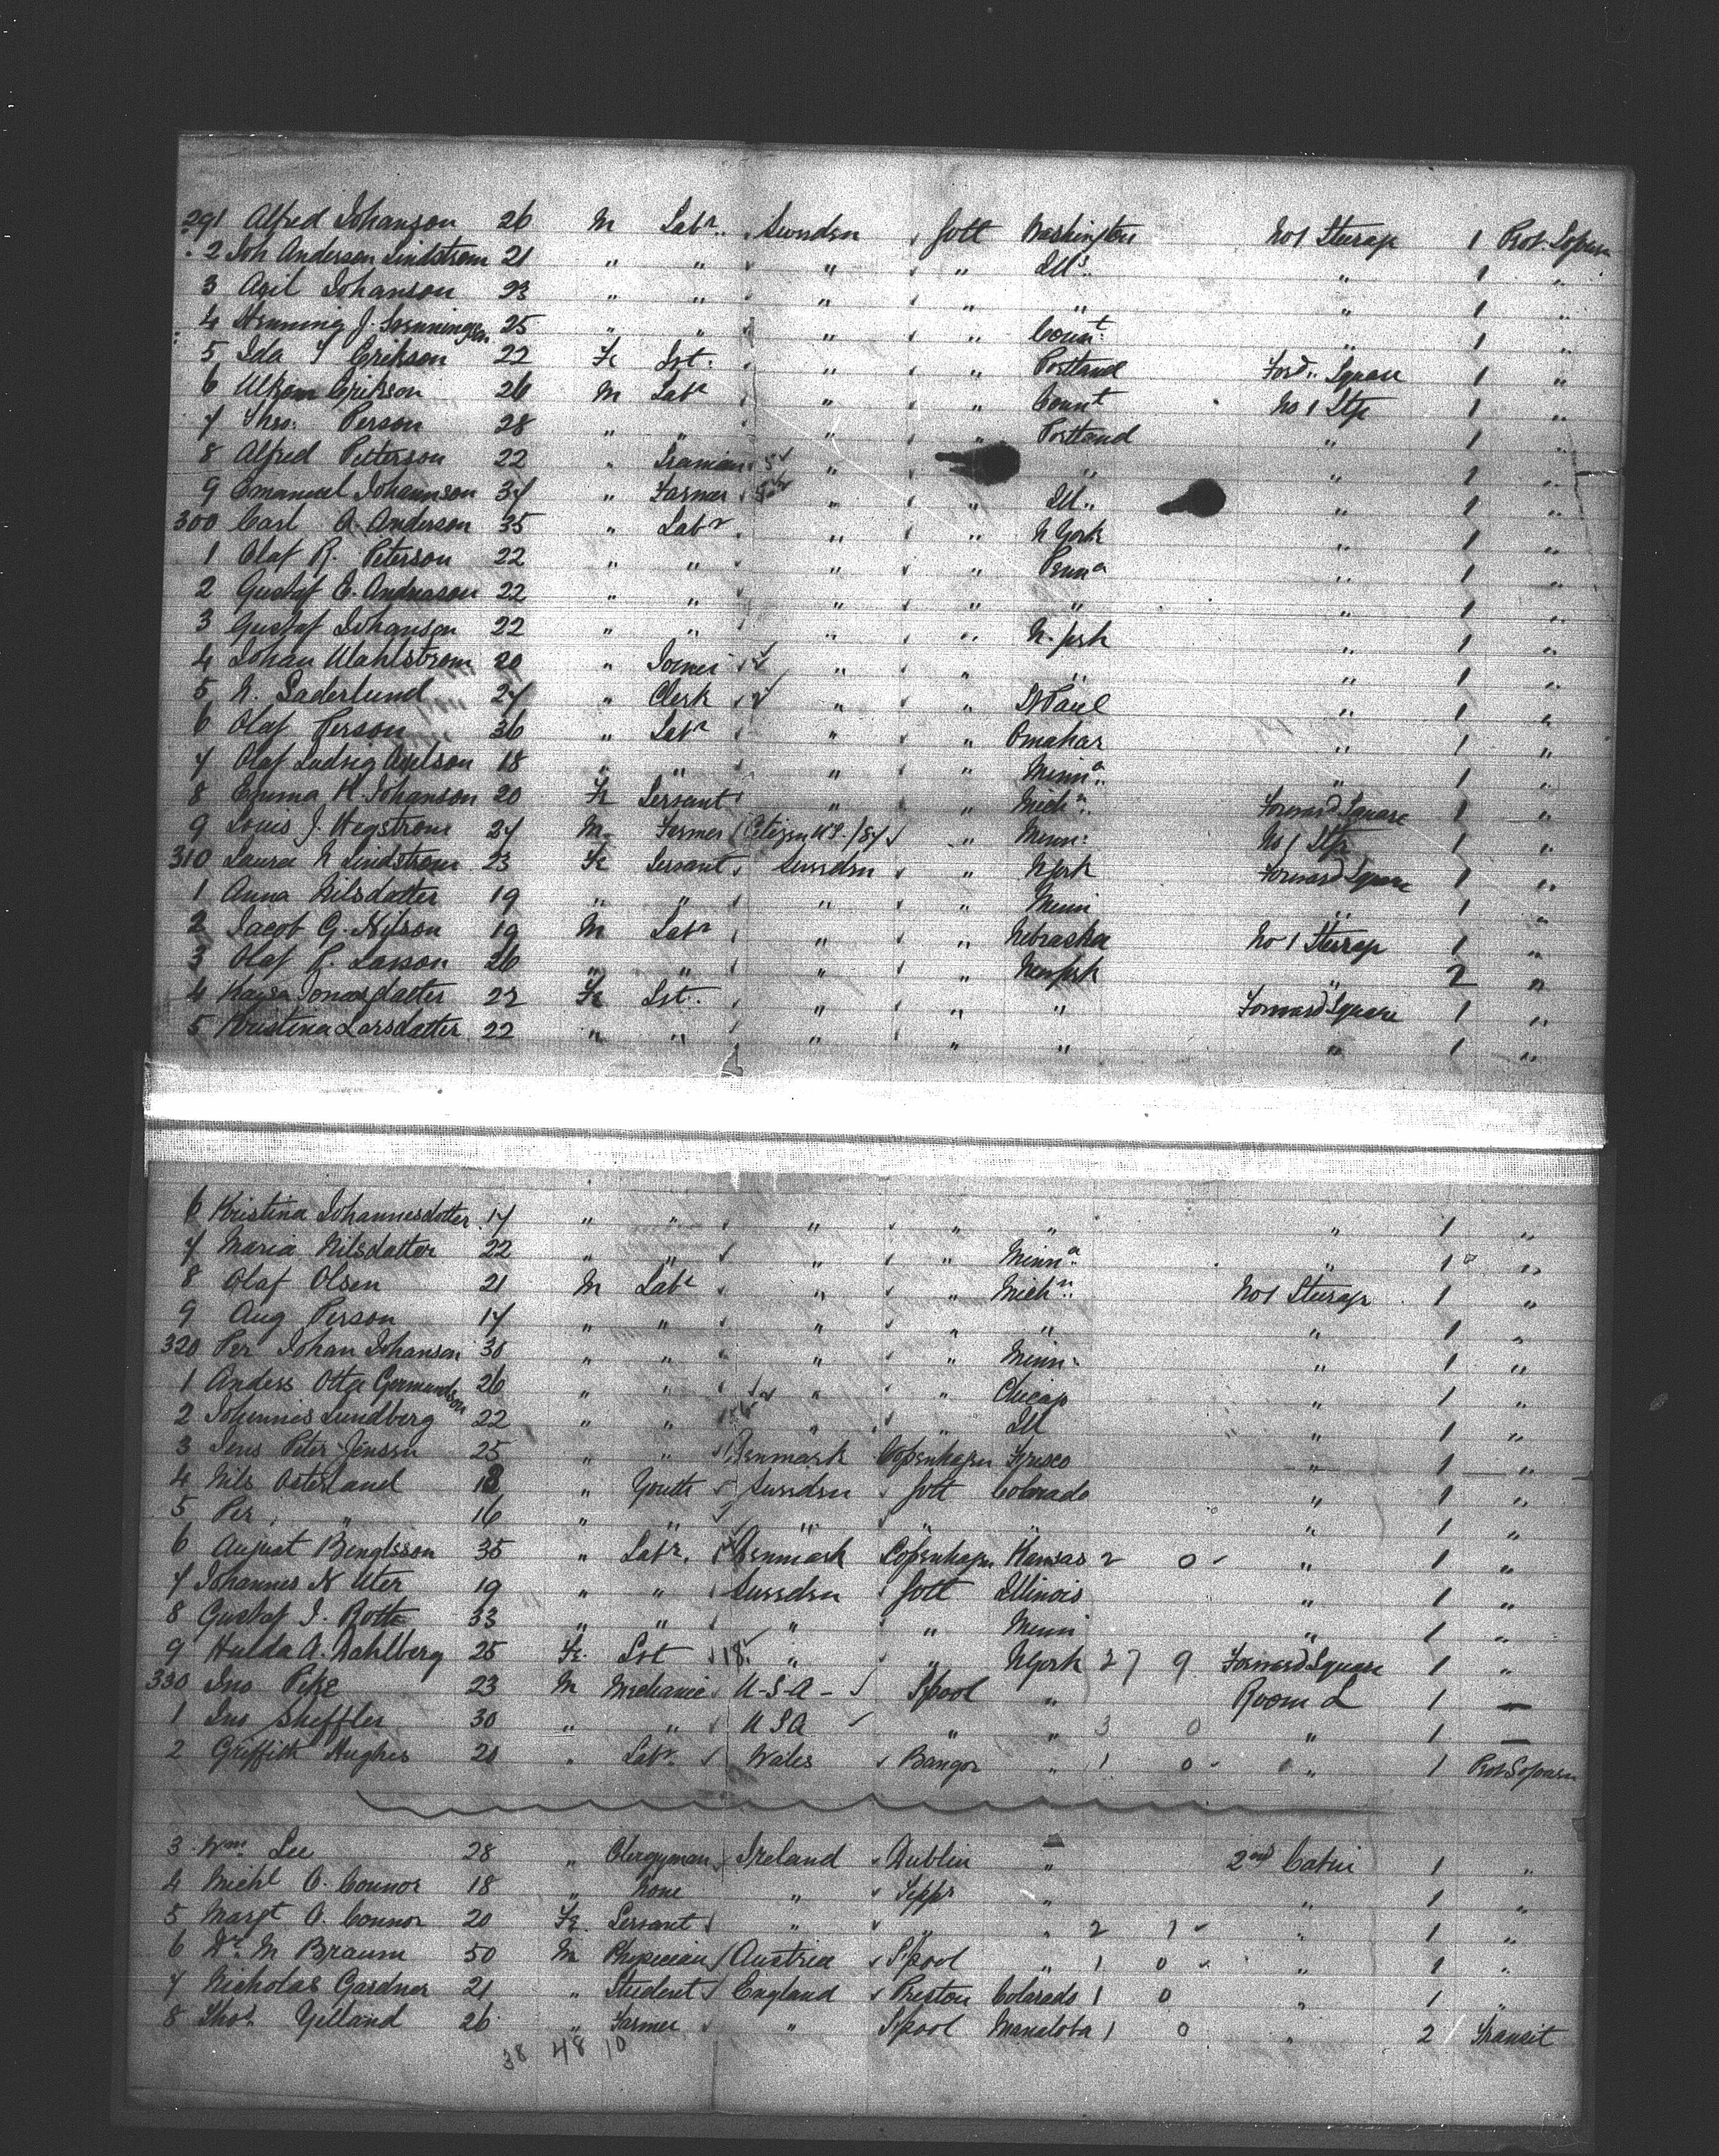 291 Alfred Johanson 26 M Labr. Sweeden Gott Washington No 1 Steerage 1 Prot. Sojourn
2 Joh Anderson Lindstrom 21 " " " " Ills. " 1 "
3 Axil Johanson 23 " " " " " " 1 "
4 Henning J. 25 " " " " Connt. " 1 "
5 Ida Erikson 22 Fe Sst. " " Portland Ford. Square 1 "
6 Erikson 26 M Labr " " Connt No 1 Stge 1 "
7 Thos. Person 28 " " " " Portland " 1 "
8 Alfred Peterson 22 " Seaman " " " 1 "
9 Emanuel Johannson 37 " Farmer " " Ill.. " 1 "
300 Carl A. Anderson 35 " Labr " " N York " 1 "
1 Olaf R. Peterson 22 " " " " Penna " 1 "
2 Gustaf E. Andreason 22 " " " " " " 1 "
3 Gustaf Johanson 22 " " " " N. York " 1 "
4 Johan Wahlstrom 20 " Joiner " " " " 1 "
5 N. Saderlund 27 " Clerk " " St Paul " 1 "
6 Olaf Person 36 " Labr " " Omahar " 1 "
7 Olaf Ludvig Axilson 18 " " " " Minna.. " 1 "
8 Emma H. Johanson 20 Fe Servant " " Michn.. Forward Square 1 "
9 Louis J. Hegstrom 27 M Farmer Citizen U S. /87 " Minn: No 1 Stge 1 "
310 Laura N Lindstrom 23 Fe Servant Sweeden " N York Forward Square 1 "
1 Anna Nilsdatter 19 " " " " Minn " 1 "
2 Jacob G. Nilson 19 M Labr " " Nebraska No 1 Steerage 1 "
3 Olaf P. Larson 26 " " " " New York " 2 "
4 Kaysa Jonasdatter 22 Fe Sst. " " " Forward Square 1 "
5 Kristina Larsdatter 22 " " " " " " 1 "
6 Kristina Johannesdotter 17 " " " " " " 1 "
7 Maria Nilsdatter 22 " " " " Minna " 1 "
8 Olaf Olsen 21 M Labr " " Michn.. No 1 Steerage 1 "
9 Aug Person 17 " " " " " " 1 "
320 Per Johan Johanson 30 " " " " Minn: " 1 "
1 Anders Otto Germundson 26 " " " " Chicago " 1 "
2 Johannes Lundberg 22 " " " " Ill " 1 "
3 Jens Peter Jensen 25 " " Denmark Copenhagen Frisco " 1 "
4 Nils Osterland 18 " Youth Sweeden Gott Colorado " 1 "
5 Per " 16 " " " " " " 1 "
6 August Bengtsson 35 " Labr. Denmark Copenhagen Kansas 2 0 " 1 "
7 Johannes N Uter 19 " " Sweeden Gott Illinois " 1 "
8 Gustaf J. Rotte 33 " " " " Minn " 1 "
9 Hulda A. Dahlberg 25 Fe. Sst 18 " " N York 27 9 Forward Square 1 "
330 Jno Pike 23 M Mechanic U-S-A- Lpool " Room L 1 —
1 Jno Sheffler 30 " " U S A " " 3 0 " 1 —
2 Griffith Hughes 20 " Labr. Wales Bangor " 1 0 " 1 Prot Sojourn
3 Wm. Lee 28 " Clergyman Ireland Dublin " 2nd Cabin 1 "
4 Michl O. Connor 18 " None " Tippr " " 1 "
5 Margt O. Connor 20 Fe. Servant " " " 2 1 " 1 "
6 Dr. M Braum 50 M Physician Austria Lpool " 1 0 " 1 "
7 Nicholas Gardner 21 " Student England Preston Colorado 1 0 " 1 "
8 Thos. Yelland 26 " Farmer " Lpool Manitoba 1 0 " 2 Transit
38 48 10